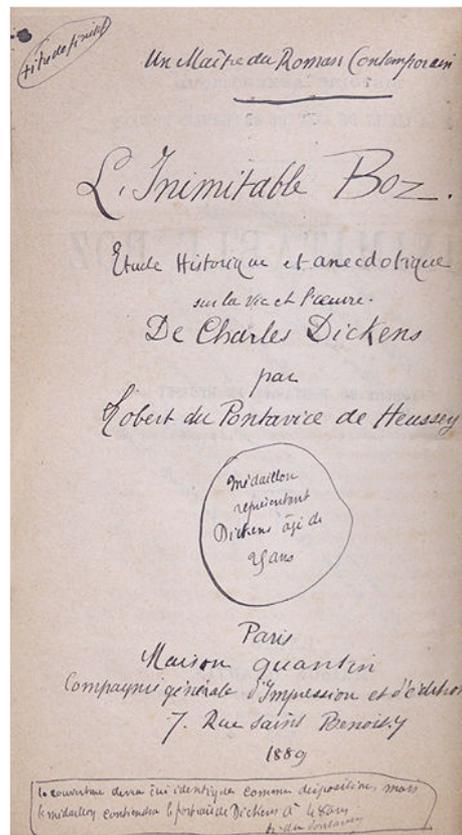 titre definitif
Un Maître du Roman Contemporain
L'Inimitable Boz.
Etude Historique et anecdotique
sur la vie et l'œuvre.
De Charles Dickens
par
Robert du Pontavice de Heussey
Médaillon
représentant
Dickens âgé de
25 ans
Paris
Maison quantin
Compagnie générale d'Impression et d'édition
7. Rue Saint Benoist 7
1889
la couverture devra être identique comme dispositions, mais
le médaillon contiendra le portrait de Dickens à 48 ans